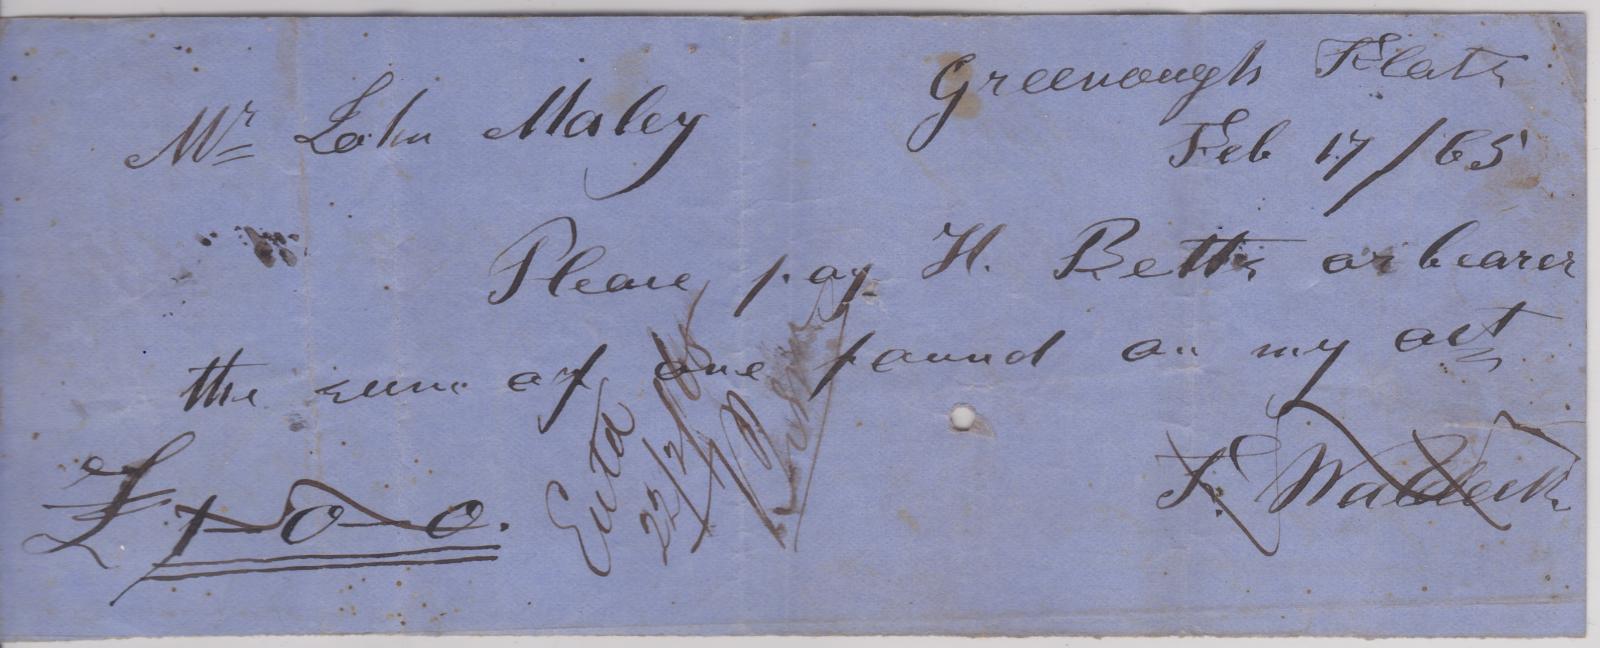 Greenough Flats
Feb 17/65
Mr John Maley
Please pay H. Betts or bearer
the sum of one pound on my act
£1-0-0.
F. Waldeck
Entd
22/2/65